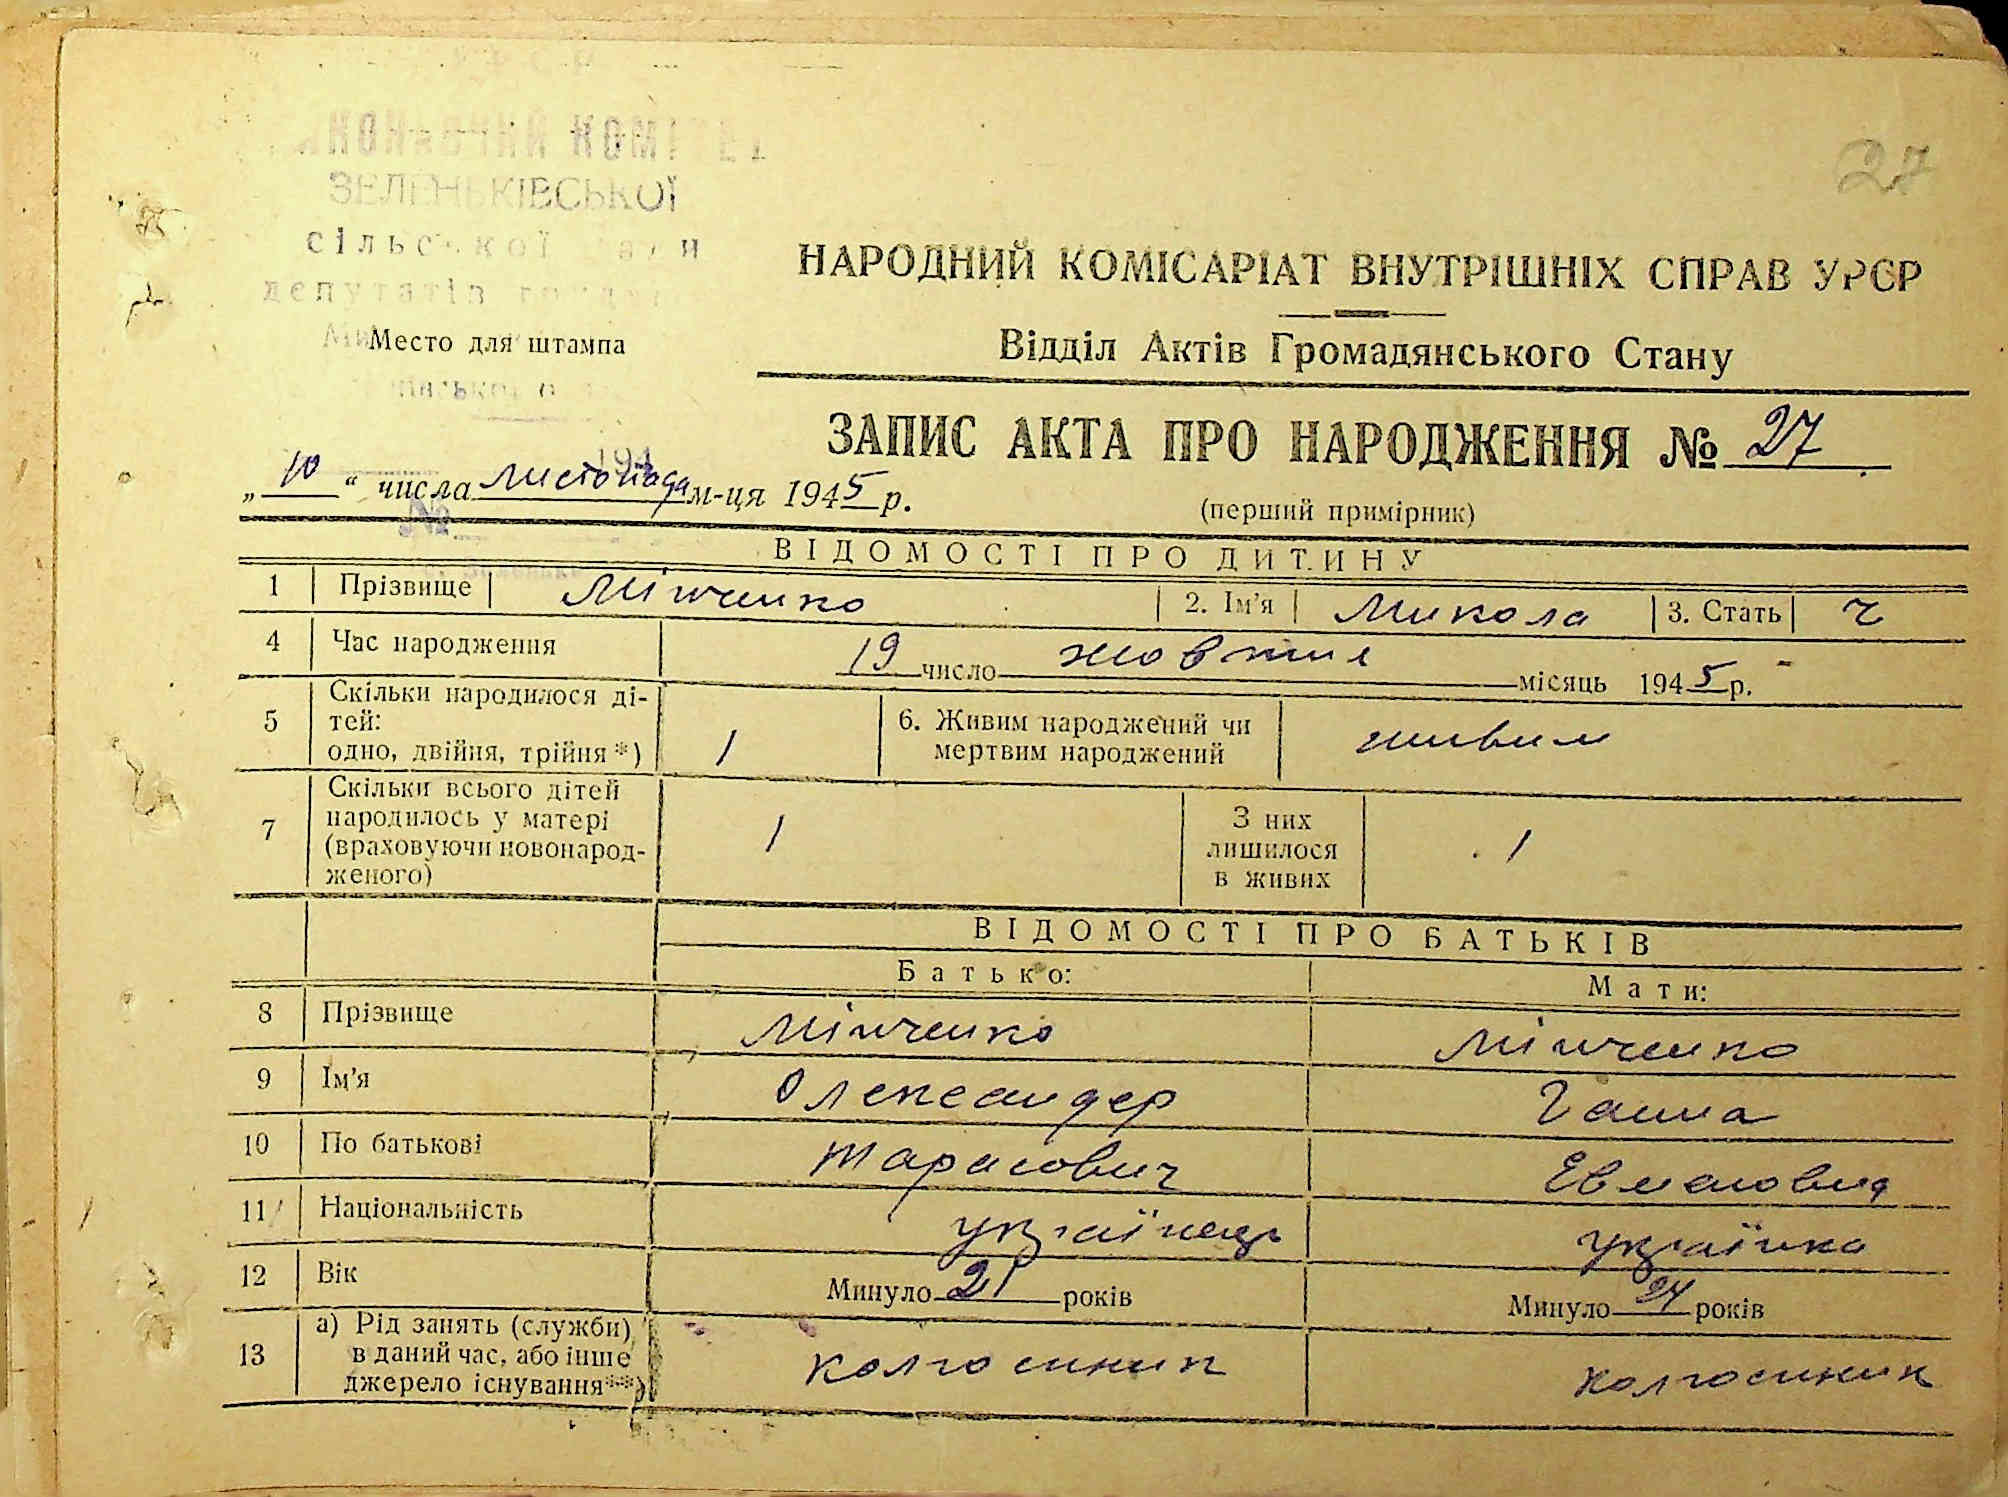 27
КОМІТЕТ
ЗЕЛЕНЬКІВСЬКОЇ
сільської ради
депутатів
Место для штампа
НАРОДНИЙ КОМІСАРІАТ ВНУТРІШНІХ СПРАВ УРСР
Відділ Актів Громадянського Стану
ЗАПИС АКТА ПРО НАРОДЖЕННЯ № 27
194
„10“ числа листопада м-ця 1945 р.
(перший примірник)
№
ВІДОМОСТІ ПРО ДИТИНУ
1 Прізвище Мінченко 2. Ім'я Микола 3. Стать ч
4 Час народження 19 число жовтня місяць 1945 р.
5 Скільки народилося ді-
тей:
одно, двійня, трійня *) 1
6. Живим народжений чи
мертвим народжений живим
7 Скільки всього дітей
народилось у матері
(враховуючи новонарод-
женого) 1
З них
лишилося
в живих 1
ВІДОМОСТІ ПРО БАТЬКІВ
Батько: Мати:
8 Прізвище Мінченко Мінченко
9 Ім'я Олександер Ганна
10 По батькові Тарасович
11 Національність українець українка
12 Вік Минуло 21 років Минуло 24 років
13 а) Рід занять (служби)
в даний час, або інше
джерело існування**) колгосиник колгосиник